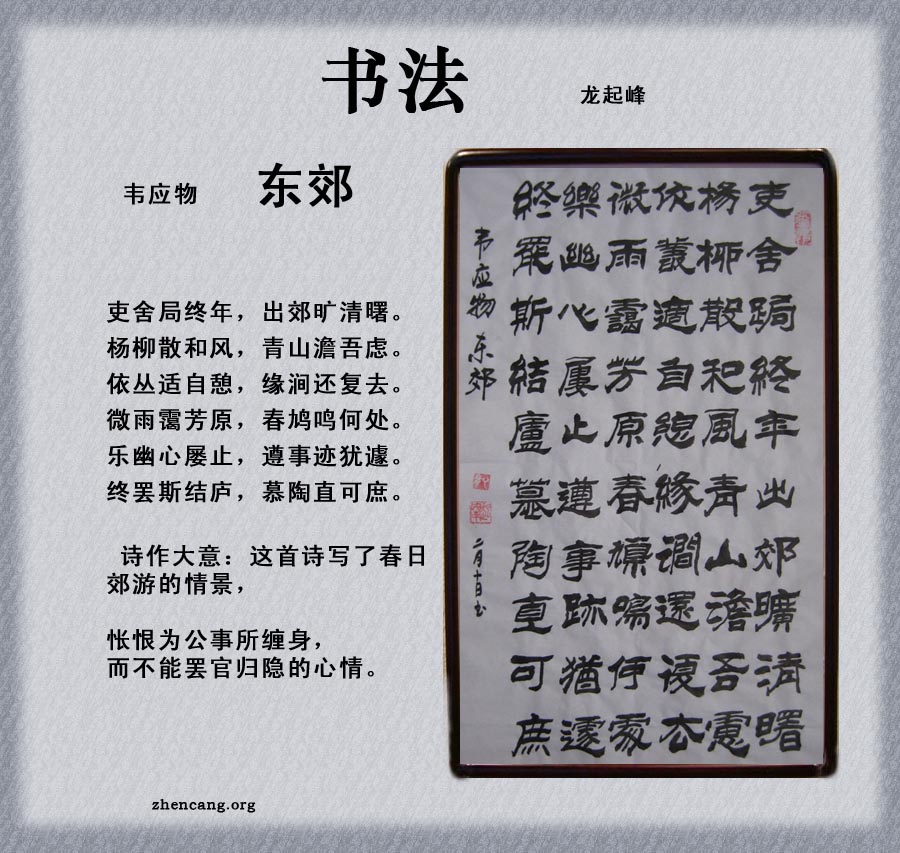 书法
龙起峰
韦应物
东郊
吏舍局终年，出郊旷清曙。
杨柳散和风，青山澹吾虑。
依丛适自憩，缘涧还复去。
微雨霭芳原，春鸠鸣何处。
乐幽心屡止，遵事迹犹遽。
终罢斯结庐，慕陶直可庶。
诗作大意：这首诗写了春日
郊游的情景，
怅恨为公事所缠身，
而不能罢官归隐的心情。
zhencang.org
吏舍跼終年出郊曠清曙
楊柳散和風青山澹吾慮
依叢適自緣澗還復去
微雨靄芳原春鳴處
樂幽心屢止遵事跡猶遽
終罷斯結廬慕陶直可庶
韦应物 东郊
二月十日书